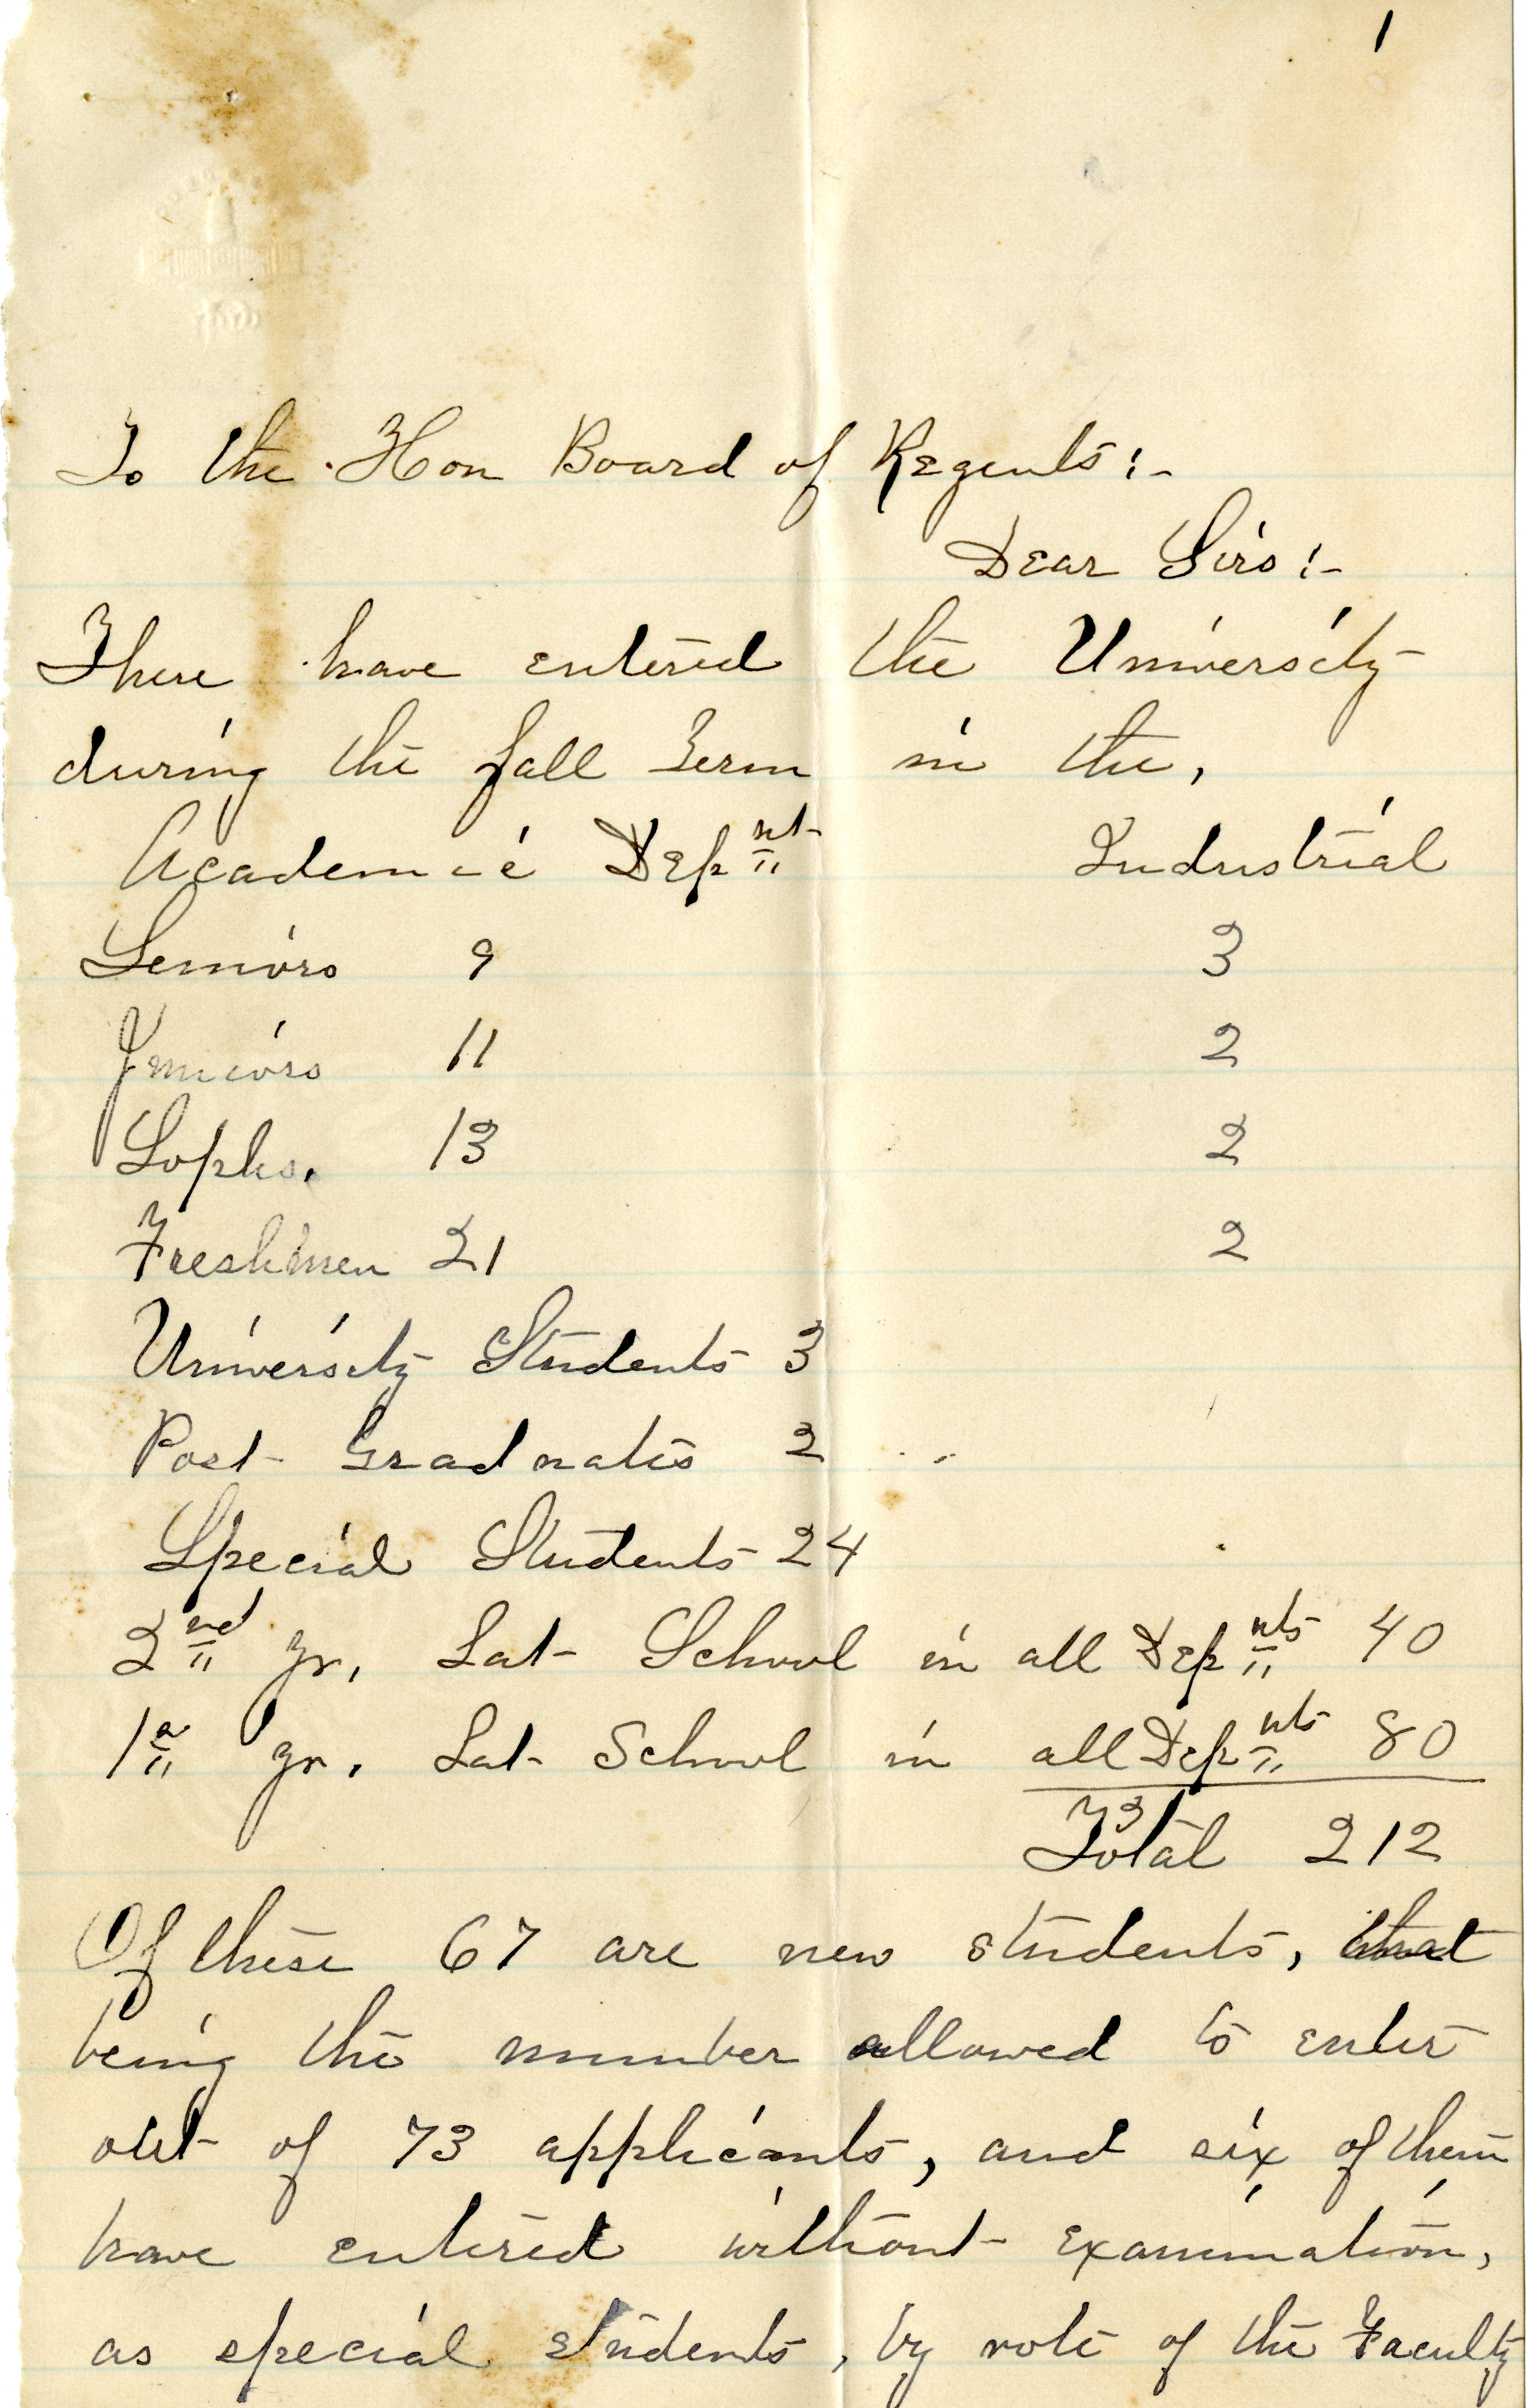 1
To the Hon Board of Regents:-
Dear Sirs:-
There have entered the University
during the fall Term in the,
Academic Dep nt Industrial
Seniors 9 3
Juniors 11 2
Sophs. 13 2
Freshmen 21 2
University Students 3
Post Graduates 2
Special Students 24
2nd yr. Lat School in all Dep nts 40
1st yr. Lat School in all Dep nts 80
Total 212
Of these 67 are new students, that
being the number allowed to enter
out of 73 applicants, and six of them
have entered without examination,
as special students, by vote of the Faculty